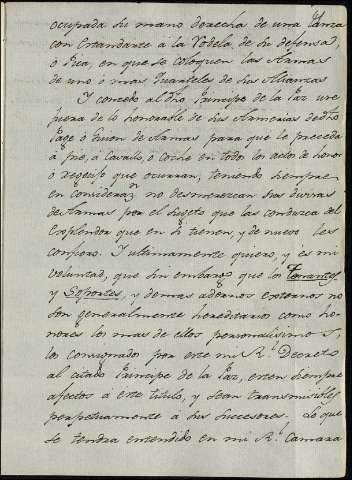 ocupada su mano derecha de una Lanza
con Estandarte à la Rodela, de su defensa,
ò Pica, en que se coloquen las Armas
de uno ò mas Quarteles de sus Alianzas
Y concedo al dho. Principe de la Paz use
fuera de lo honorable de sus Armerias de dho.
Page ò Guion de Armas para que le preceda
à pie, à Cavallo, ò Coche en todos los actos de honor
ò regocijo que ocurran, teniendo siempre
en consideraz.n no desmerezcan sus divisas
de Armas por el Sujeto que las conduzca del
Esplendor que en si tienen, y de nuevo les
confiero. Y ultimamente quiero, y es mi
voluntad, que sin embargo que los Tenantes
y Soportes, y demas adornos externos no
son generalmente hereditarios como ho-
nores los mas de ellos personalisimos,
los consignados por este mi R.l Decreto
al citado Principe de la Paz, esten siempre
afectos à este titulo, y sean transmisibles
perpetuamente à sus sucesores. Lo que
se tendra entendido en mi R.l Camara